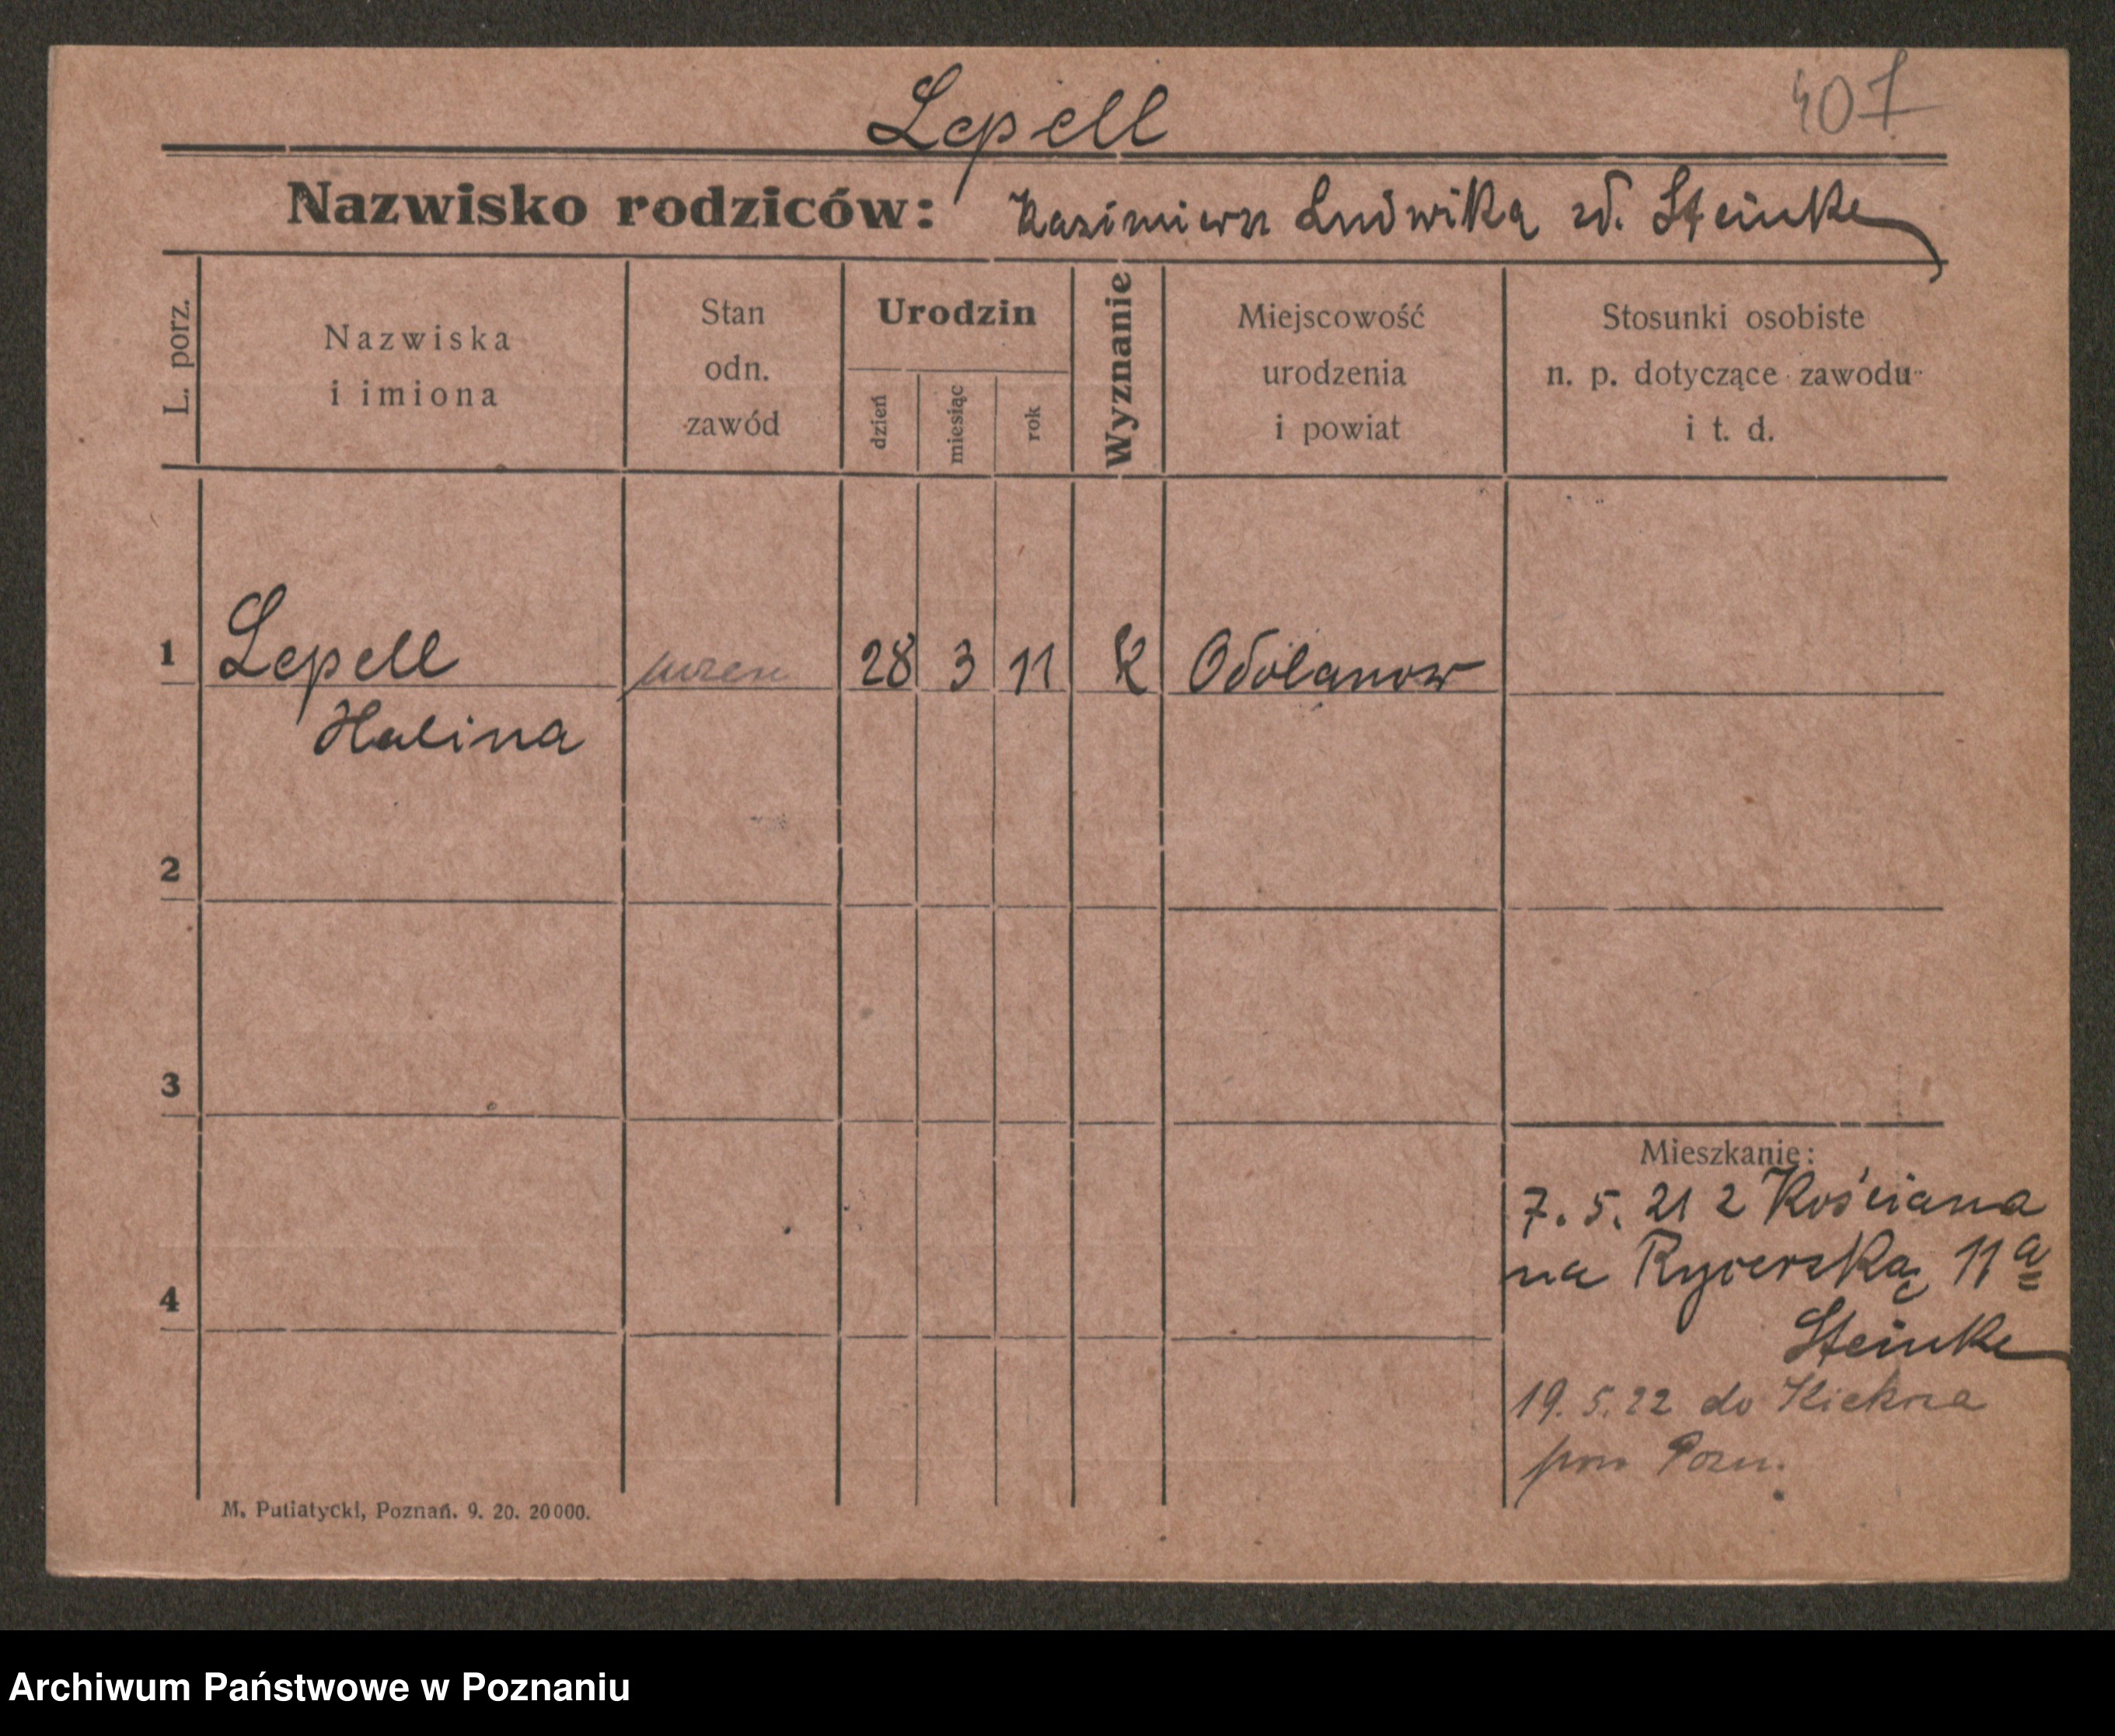 Lepell
407
Nazwisko rodziców: Kazimierz Ludwika zd. Steinke
L. porz.
Nazwiska
i imiona
Stan
odn.
zawód
Urodzin
dzień
miesiąc
rok
Wyznanie
Miejscowość
urodzenia
i powiat
Stosunki osobiste
n. p. dotyczące zawodu
i t. d.
1 Lepell 28 3 11 k Odolanow
Halina
2
3
4
Mieszkanie:
7. 5. 21 z Kościana
na Rycerską 11 a
Steinke
19. 5. 22 do Kiekrza
pow Pozn.
M. Putiatycki, Poznań. 9. 20. 20000.
Archiwum Państwowe w Poznaniu